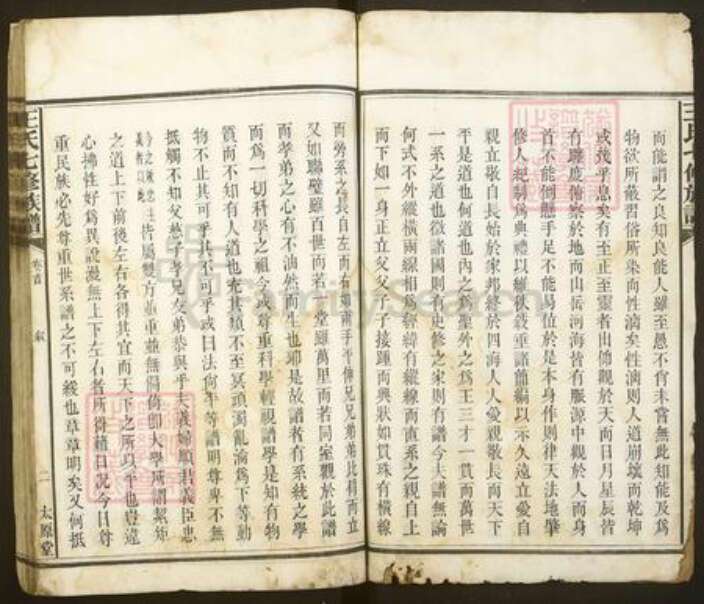 王氏七修族譜
而能謂之良知良能人雖至愚不肖未嘗無此知能及爲
物欲所蔽習俗所染而性漓矣性漓則人道崩壞而乾坤
或幾乎息矣有至正至靈者出傳觀於天而日月星辰皆
有躔度俯察於地而山岳河海皆有脈源中觀於人而身
首不能倒懸手足不能易位於是本身作則律天法地肇
修人紀制爲典禮以維秩敘垂諸簡編以示久遠立愛自
親立敬自長始於家邦終於四海人人愛親敬長而天下
平是道也何道也內之爲聖外之爲王三才一貫而萬世
一系之道也徵諸國則有史修之家則有譜今夫譜無論
何式不外縱橫兩線相爲經緯有縱線而直系之親自上
而下如一身正立父父子子接踵而興狀如貫珠有橫線
而旁系之長自左而右如兩手平伸兄兄弟弟比肩而立
又如聯璧雖百世而若一堂雖萬里而若同室觀於此譜
而孝弟之心有不油然而生也耶是故譜者有系統之學
而爲一切科學之祖今或尊重科學輕視譜學是知有物
質而不知有人道也充其類不至冥頑濁亂淪爲下等動
物不止其可乎其不可乎或曰法何平等譜明尊卑不無
抵觸不知父慈子孝兄友弟恭與乎夫義婦順君義臣忠
皆屬雙方並重並無偏倚即大學所謂絜矩
之道上下前後左右各得其宜而天下之所以平也豈違
心拂性好爲異說漫無上下左右者所得藉口况今日尊
重民族必先尊重世系譜之不可緩也章章明矣又何抵
王氏七修族譜
卷首
敘
二
太原堂
FamilySearch